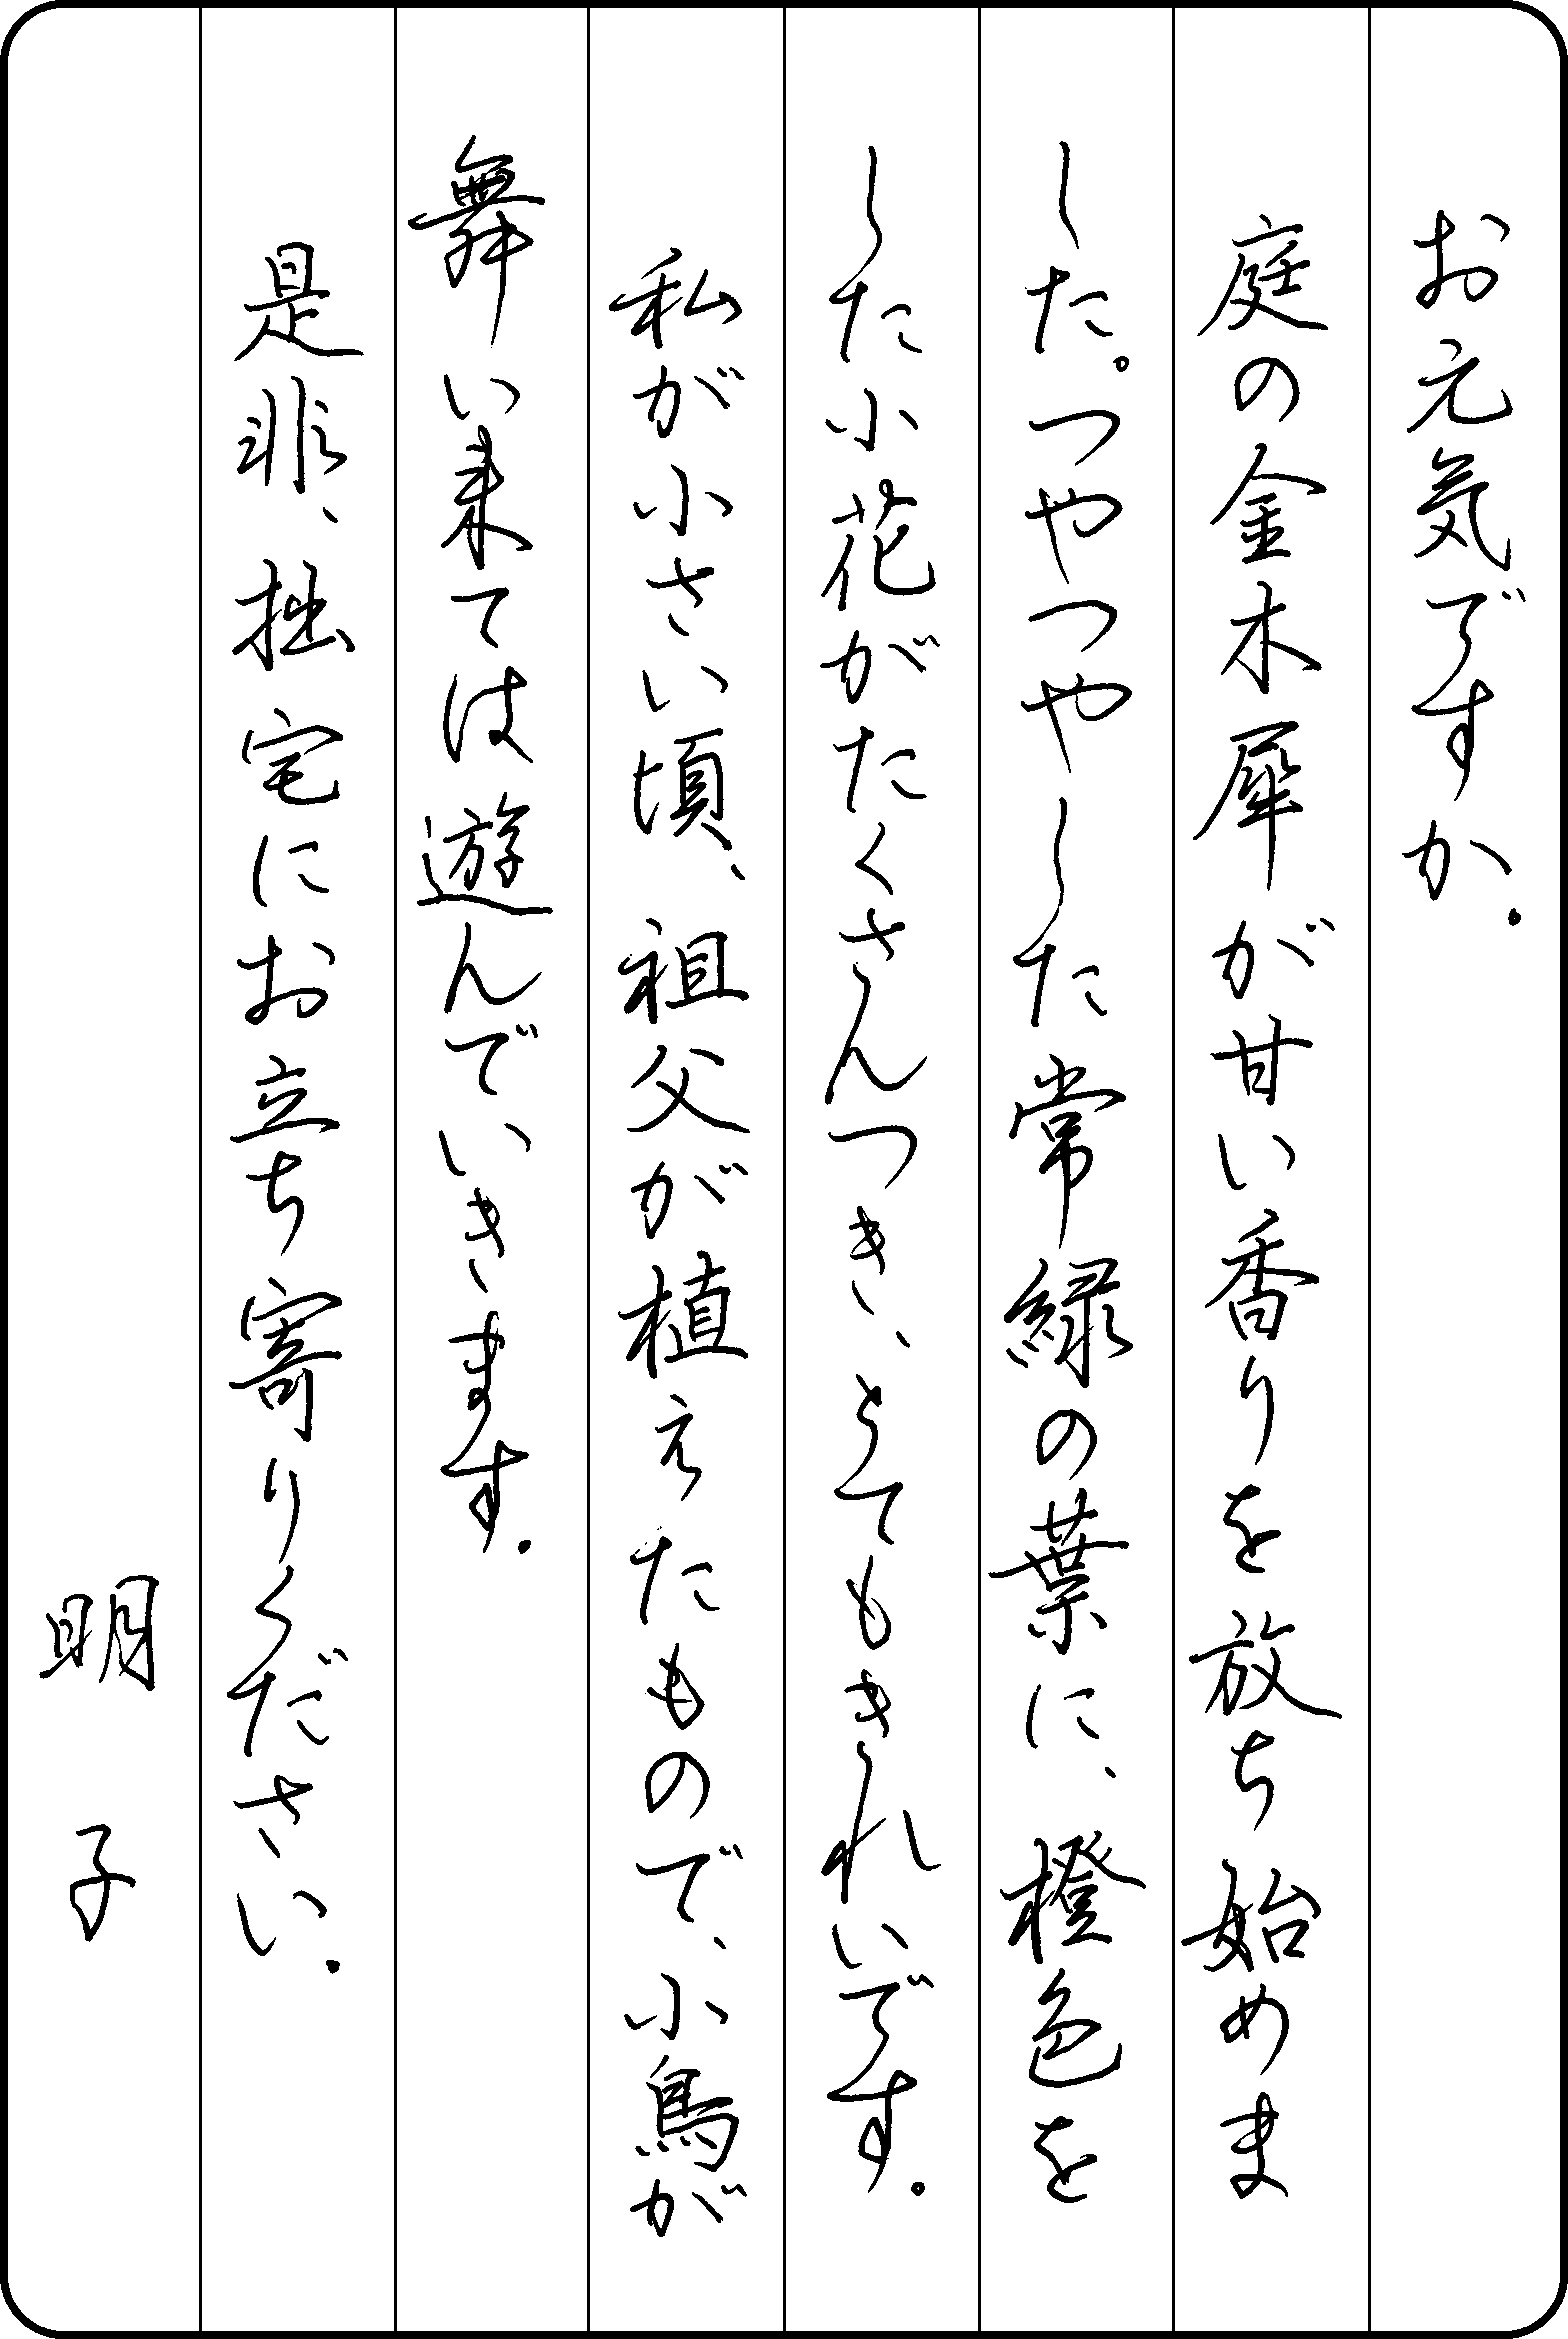 お元気ですか。
庭の金木犀が甘い香りを放ち始めま
した。つやつやした常緑の葉に、橙色を
した小花がたくさんつき、とてもきれいです。
私が小さい頃、祖父が植えたもので、小鳥が
舞い来ては遊んでいきます。
是非、拙宅にお立ち寄りください。
明子